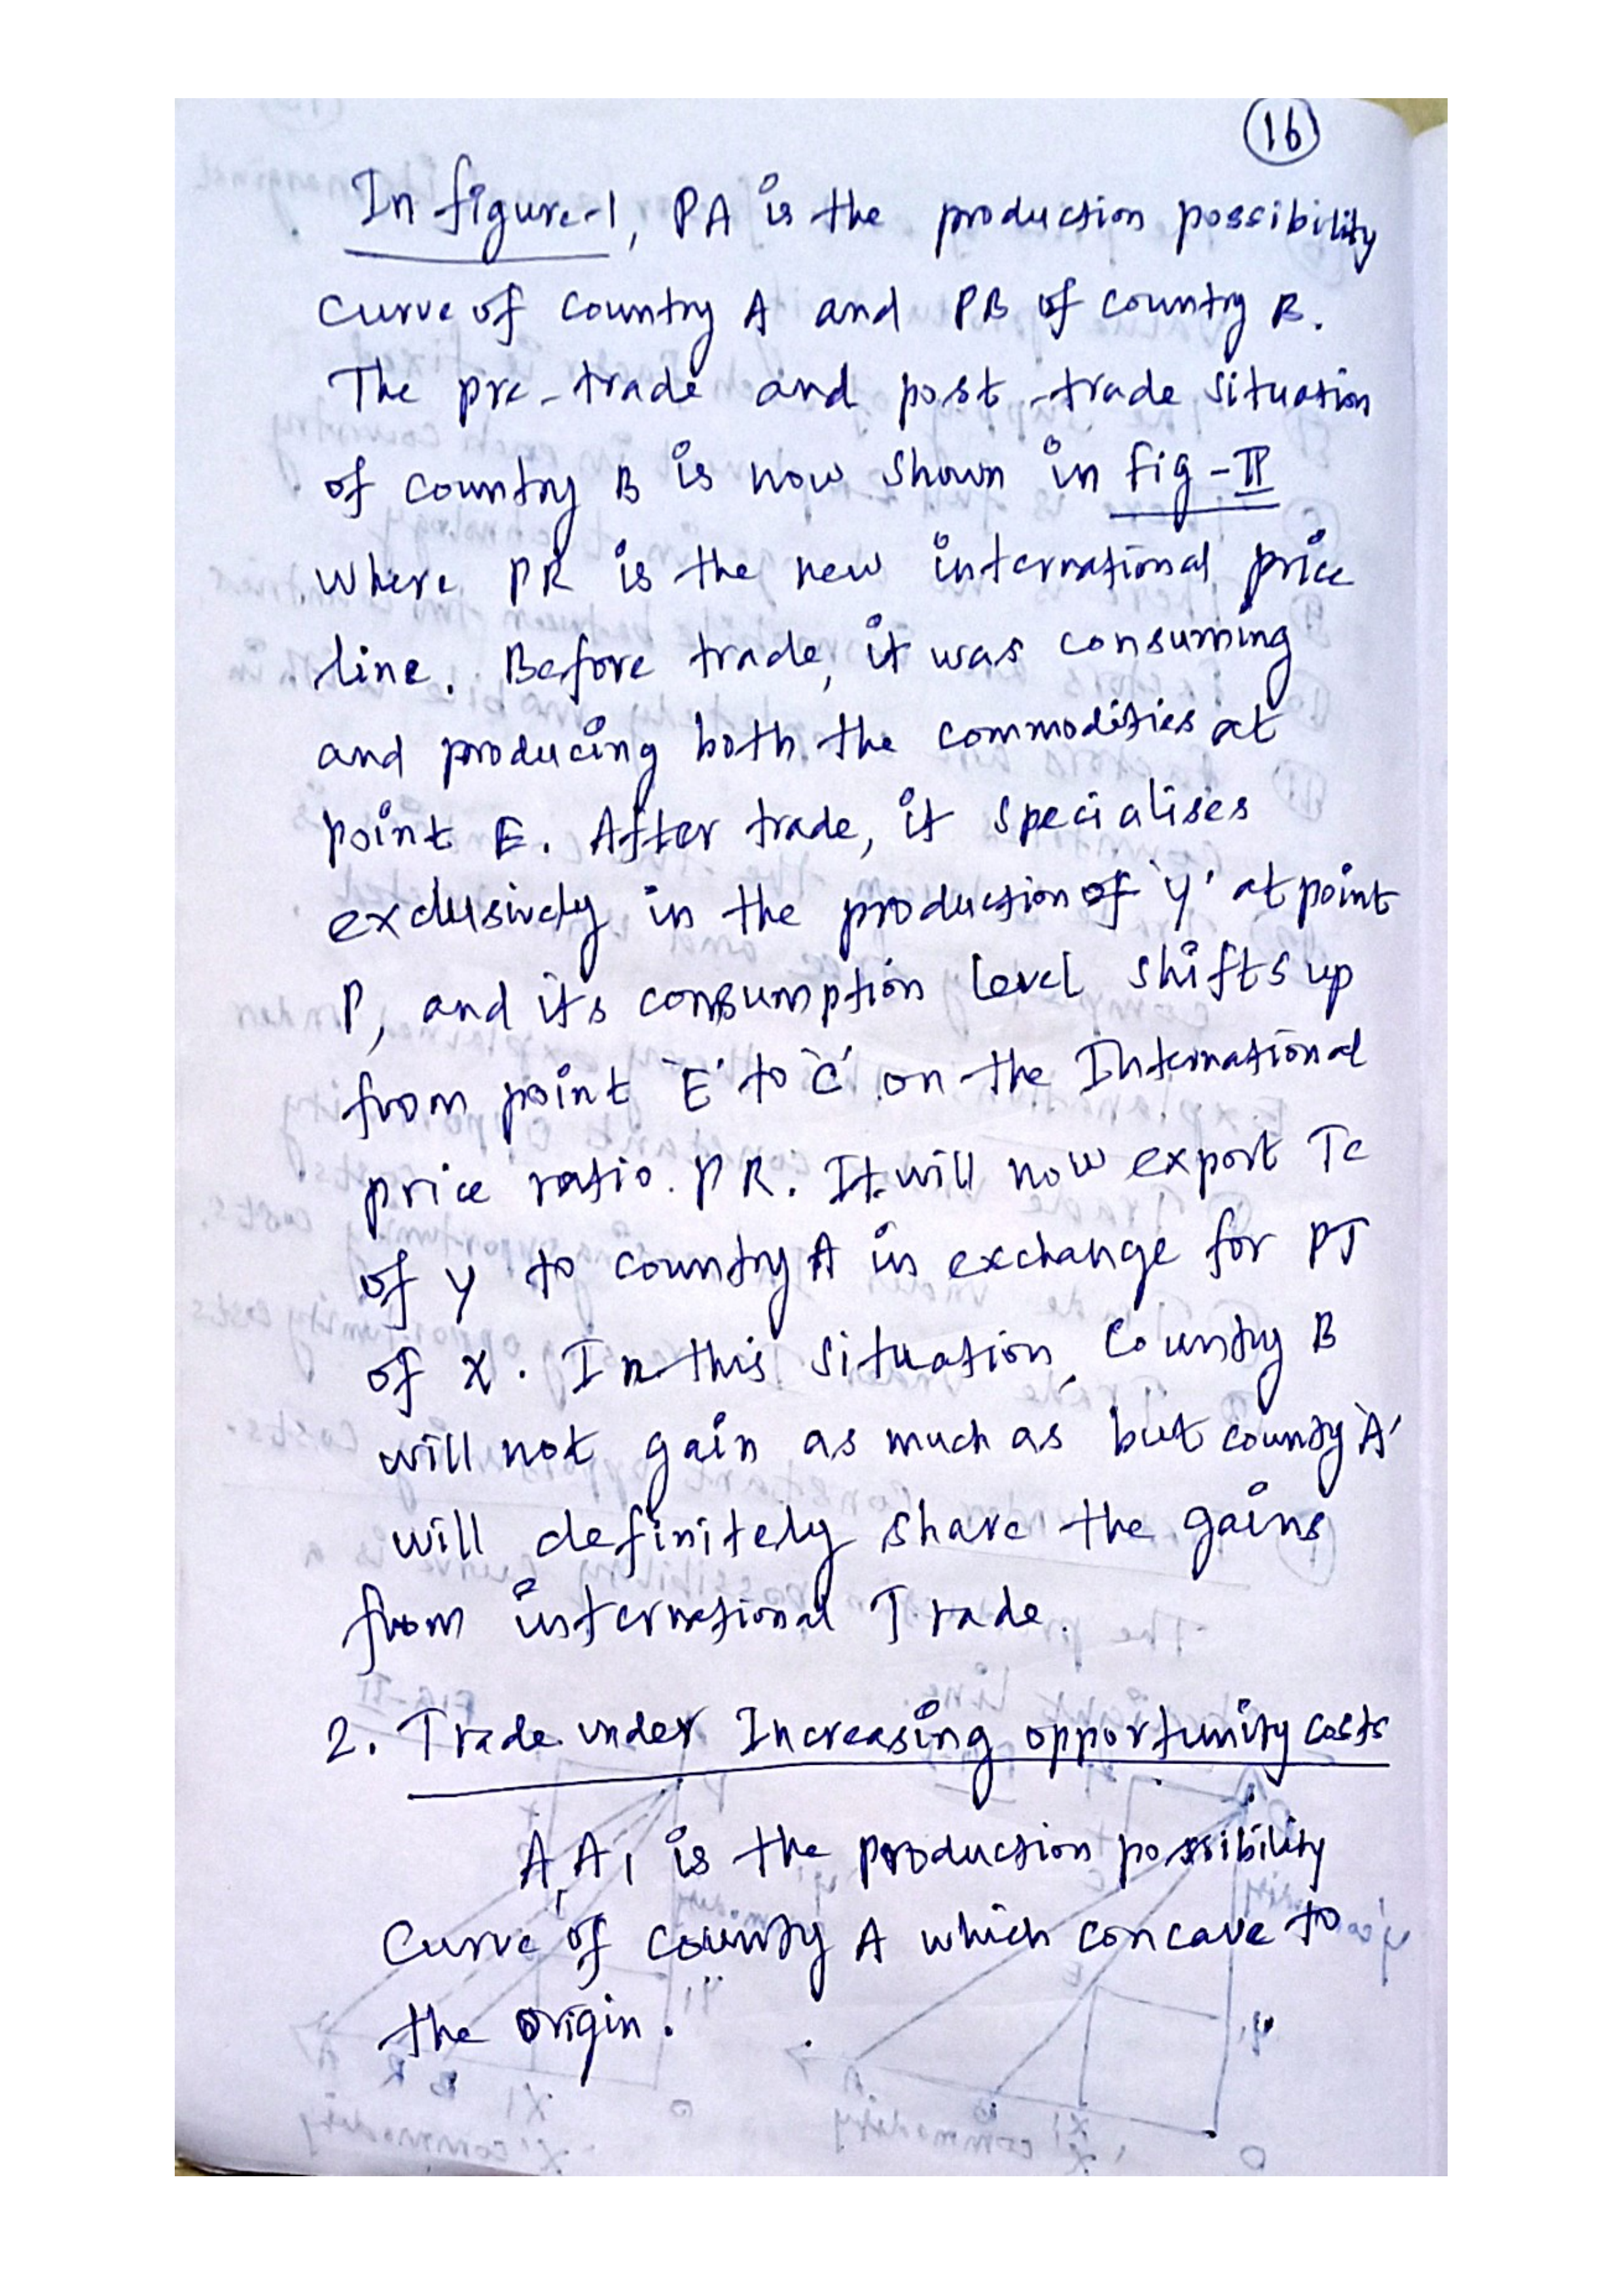 16
In figure-1, PA is the production possibility
curve of country A and PB of country B.
The pre-trade and post-trade situation
of country B is now shown in fig-II
where PR is the new international price
line. Before trade, it was consuming
and producing both the commodities at
point E. After trade, it specialises
exclusively in the production of 'y' at point
P, and its consumption level shifts up
from point 'E' to 'C' on the International
price ratio. PR. It will now export Tc
of y to country A in exchange for PT
of x. In this situation, Country B
will not gain as much as but county 'A'
will definitely share the gains
from international Trade.
2. Trade under Increasing opportunity costs
A, A1 is the production possibility
Curve of county A which concave to
the origin.